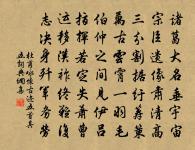 諸葛大名垂宇宙
宗臣遺像肅清高
三分割據紆籌策
萬古雲霄一羽毛
伯仲之間見伊呂
指揮若定失蕭曹
運移漢祚終難復
志決身殲軍務勞
杜甫詠懷古迹五首其
五詞典網集